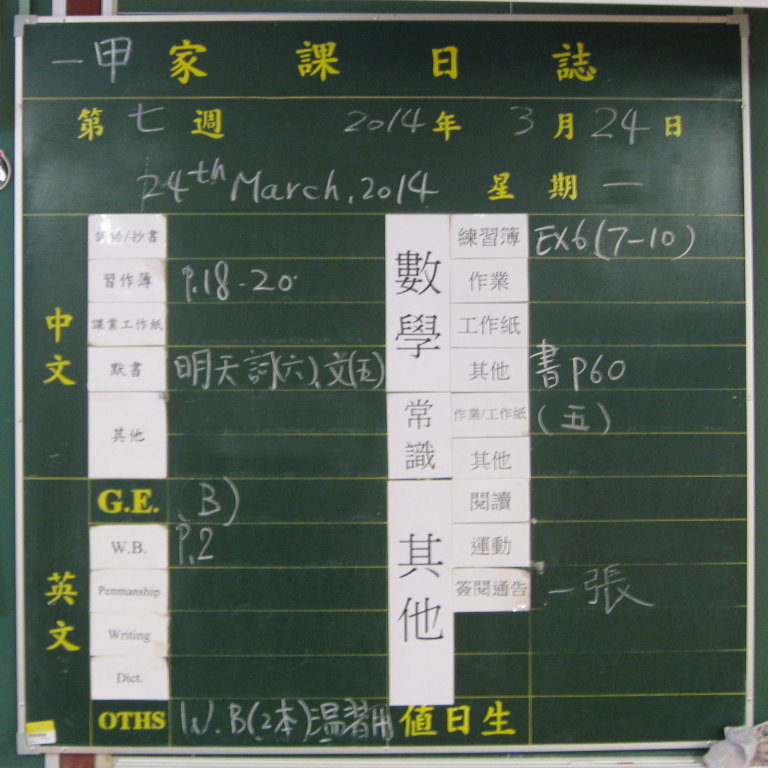 一甲 家課日誌
第七週 2014年3月24日
24th March, 2014 星期一
中文
詞語/抄書
習作簿 P.18-20
課業工作紙
默書 明天詞(六), 文(五)
其他
英文
G.E. (B)
W.B. P.2
Penmanship
Writing
Dict.
OTHS W.B(2本)溫習冊
數學
練習簿 EX6(7-10)
作業
工作紙
其他 書P60
常識
作業/工作紙 (五)
其他
其他
閱讀
運動
簽閱通告 一張
值日生